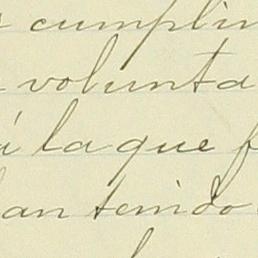 cumplim
volunta
á la que f
han tenido